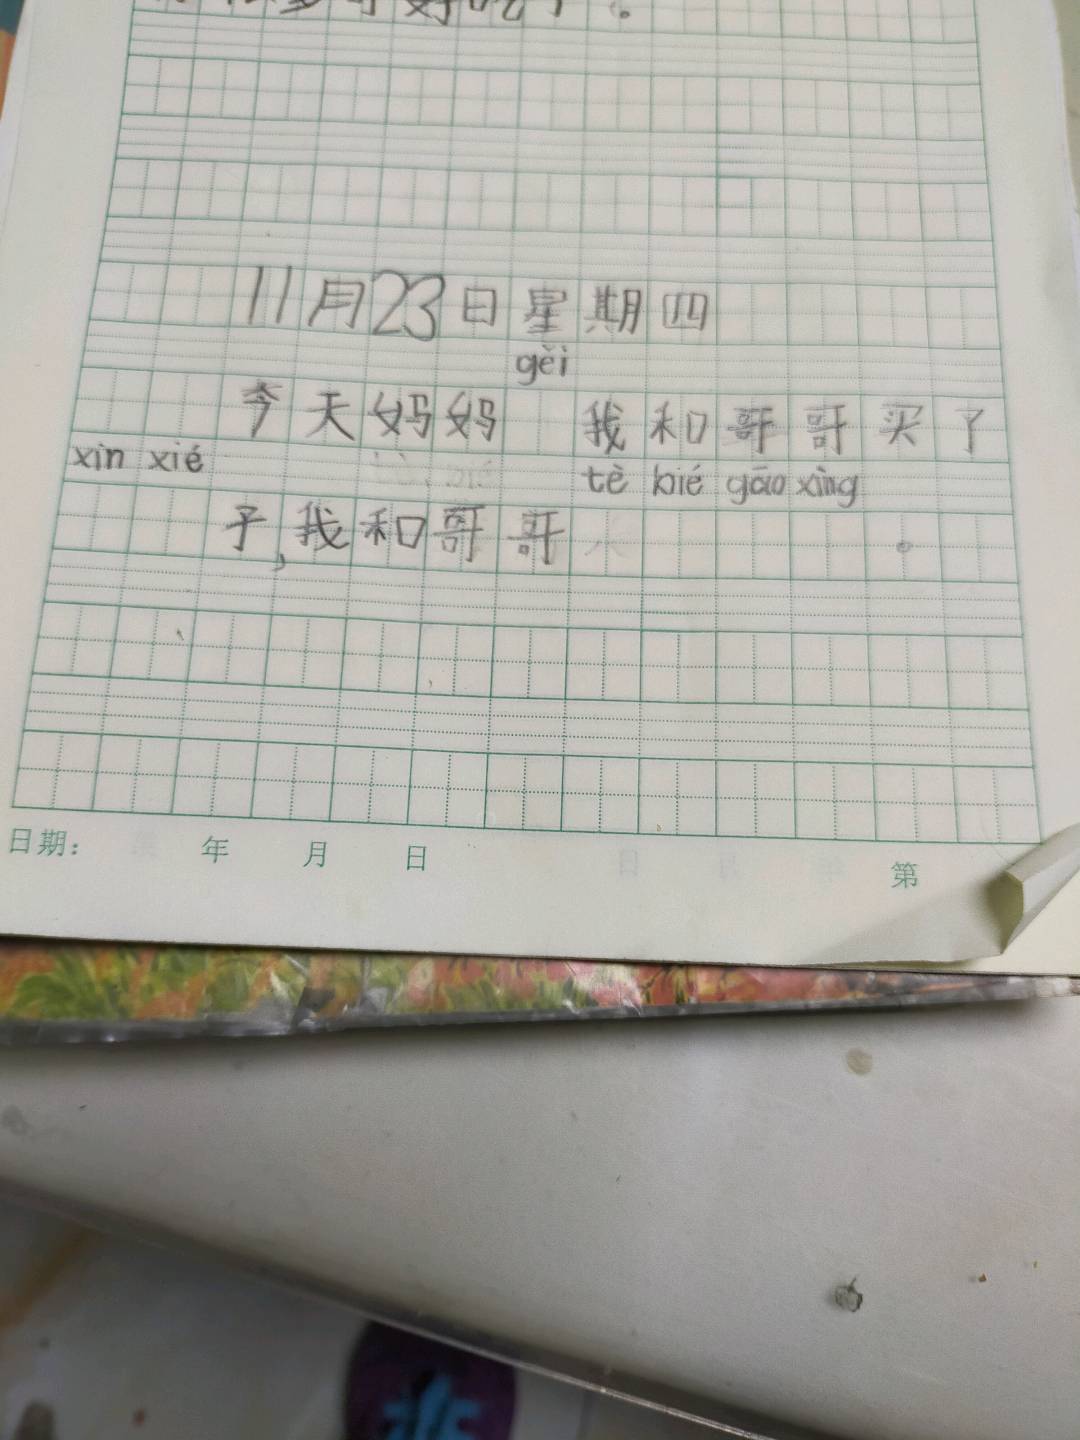 11月23日星期四
gěi
今天妈妈 我和哥哥买了
xīn xié tè bié gāo xìng
子,我和哥哥 。
日期: 年 月 日 第